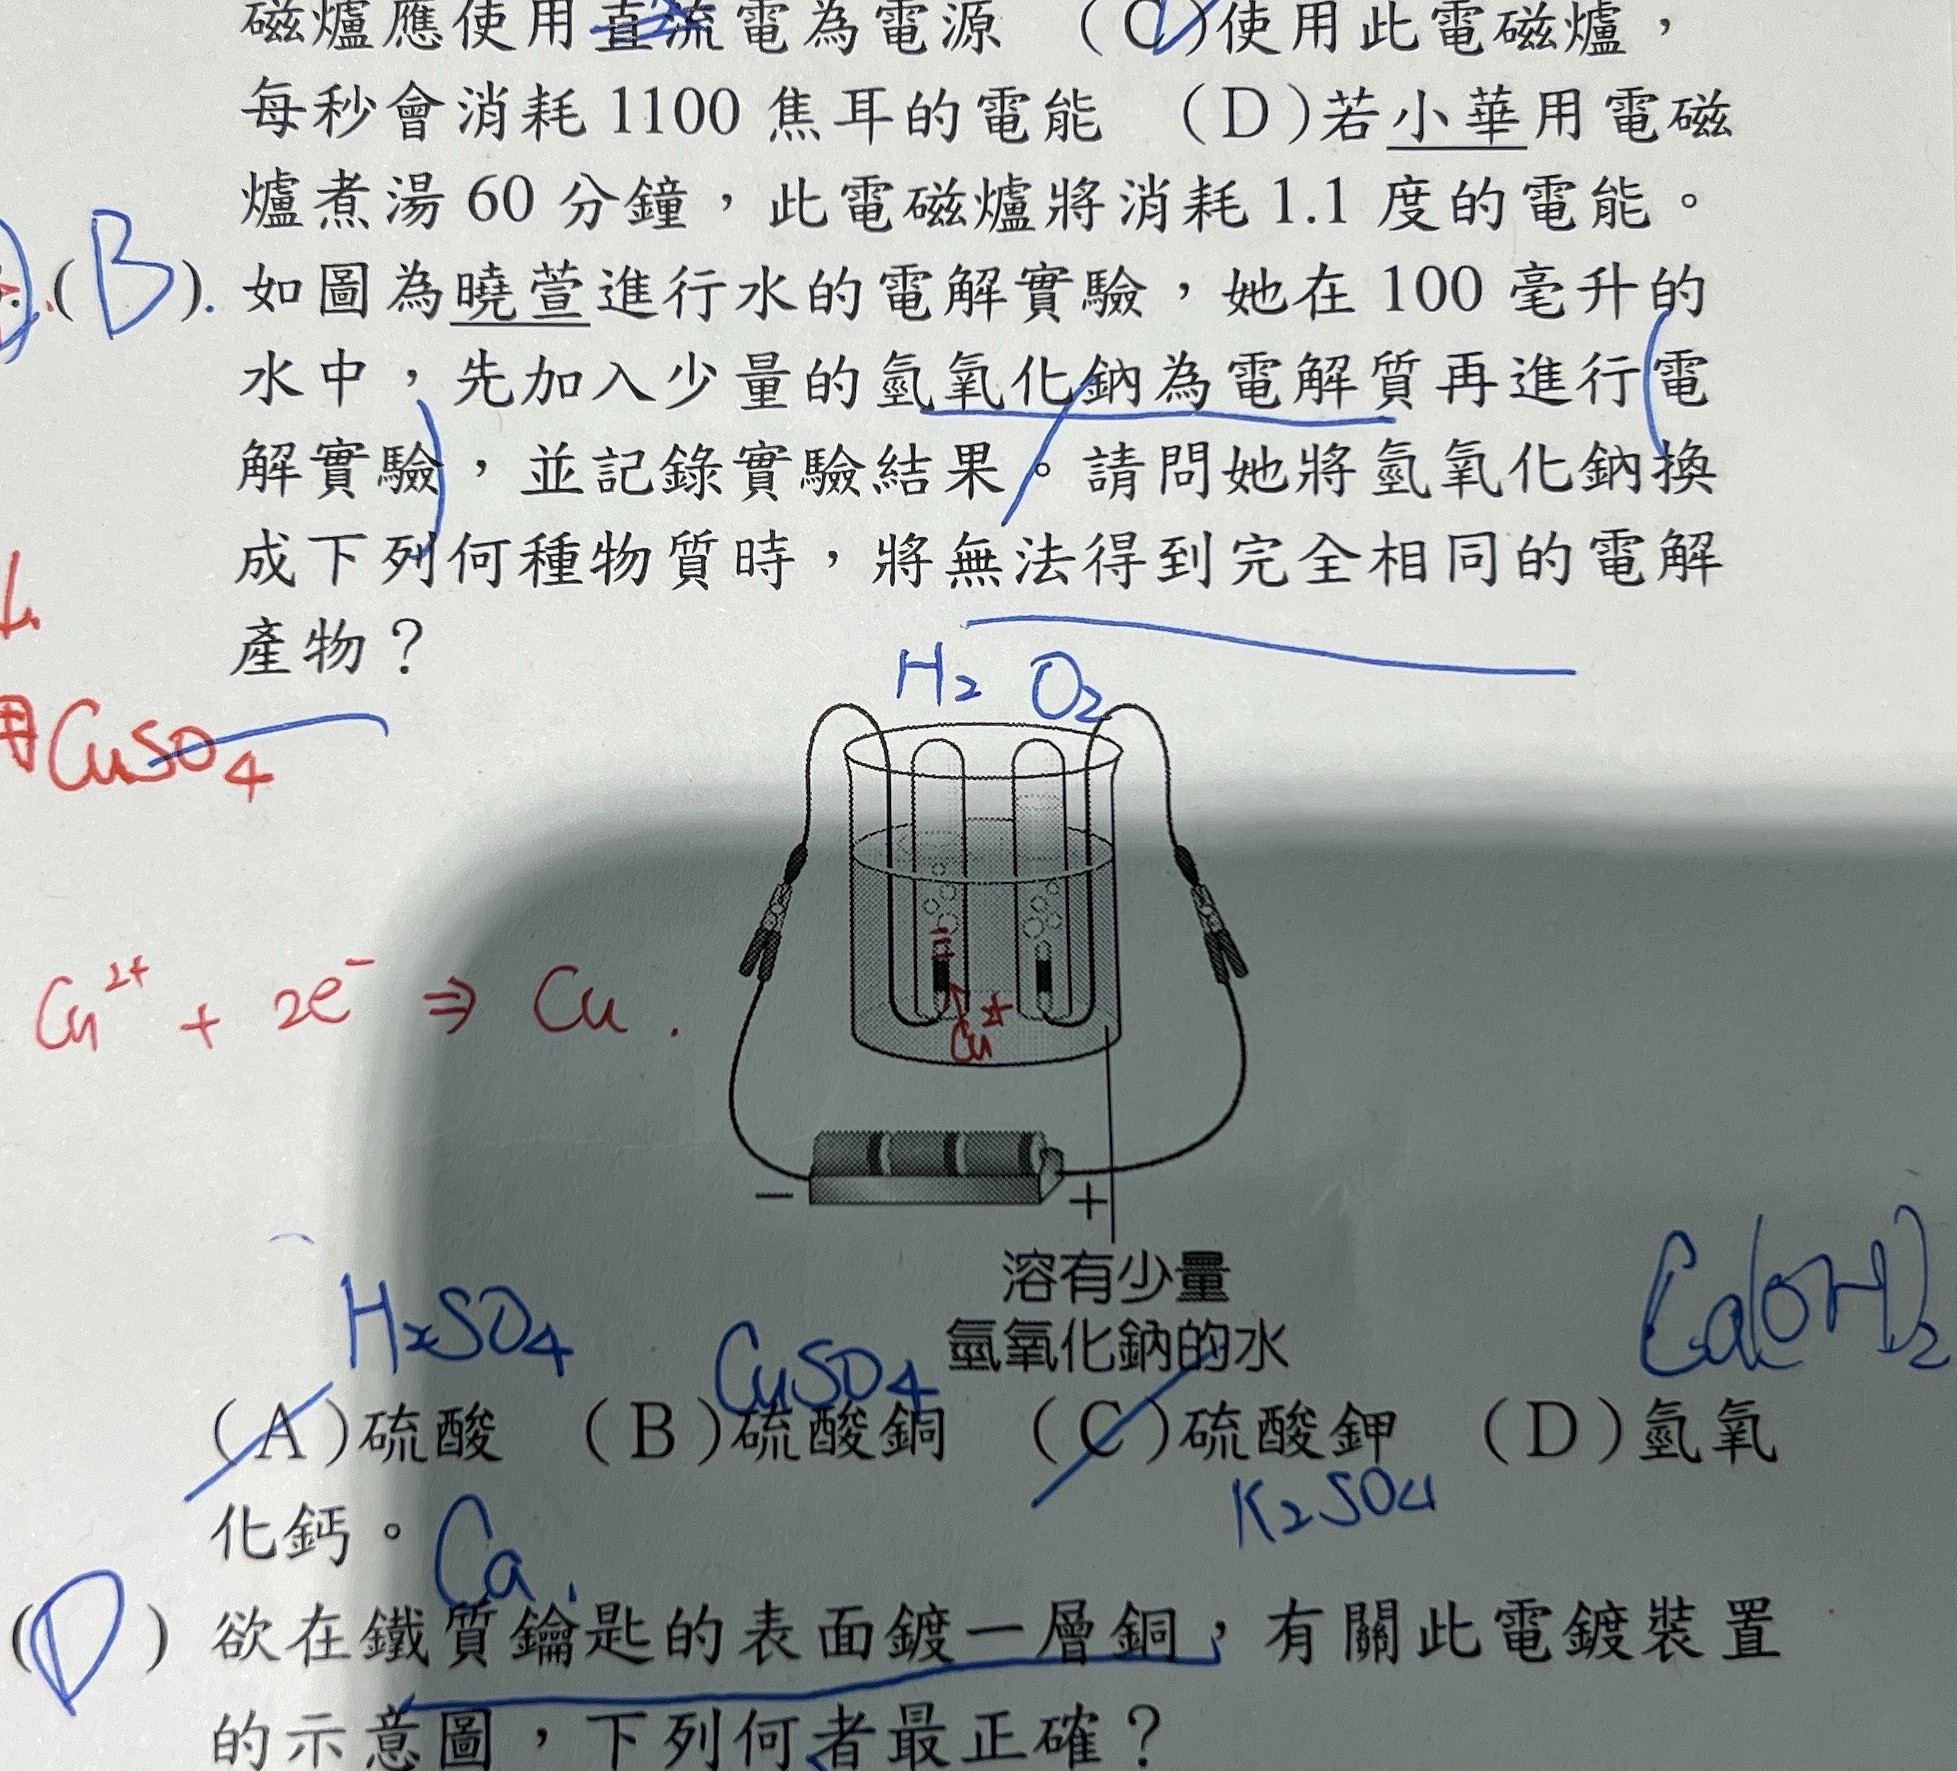 磁爐應使用直流電為電源 (C)使用此電磁爐，
每秒會消耗1100焦耳的電能 (D)若小華用電磁
爐煮湯60分鐘，此電磁爐將消耗1.1度的電能。
(B). 如圖為曉萱進行水的電解實驗，她在100毫升的
水中，先加入少量的氫氧化鈉為電解質再進行電
解實驗，並記錄實驗結果。請問她將氫氧化鈉換
成下列何種物質時，將無法得到完全相同的電解
產物？
H₂ O₂
用CuSO₄
Cu²⁺ + 2e⁻ ⇒ Cu.
Cu²⁺
− +
溶有少量
氫氧化鈉的水
H₂SO₄ CuSO₄ Ca(OH)₂
(A)硫酸 (B)硫酸銅 (C)硫酸鉀 (D)氫氧
K₂SO₄
化鈣。 Ca
(D) 欲在鐵質鑰匙的表面鍍一層銅，有關此電鍍裝置
的示意圖，下列何者最正確？